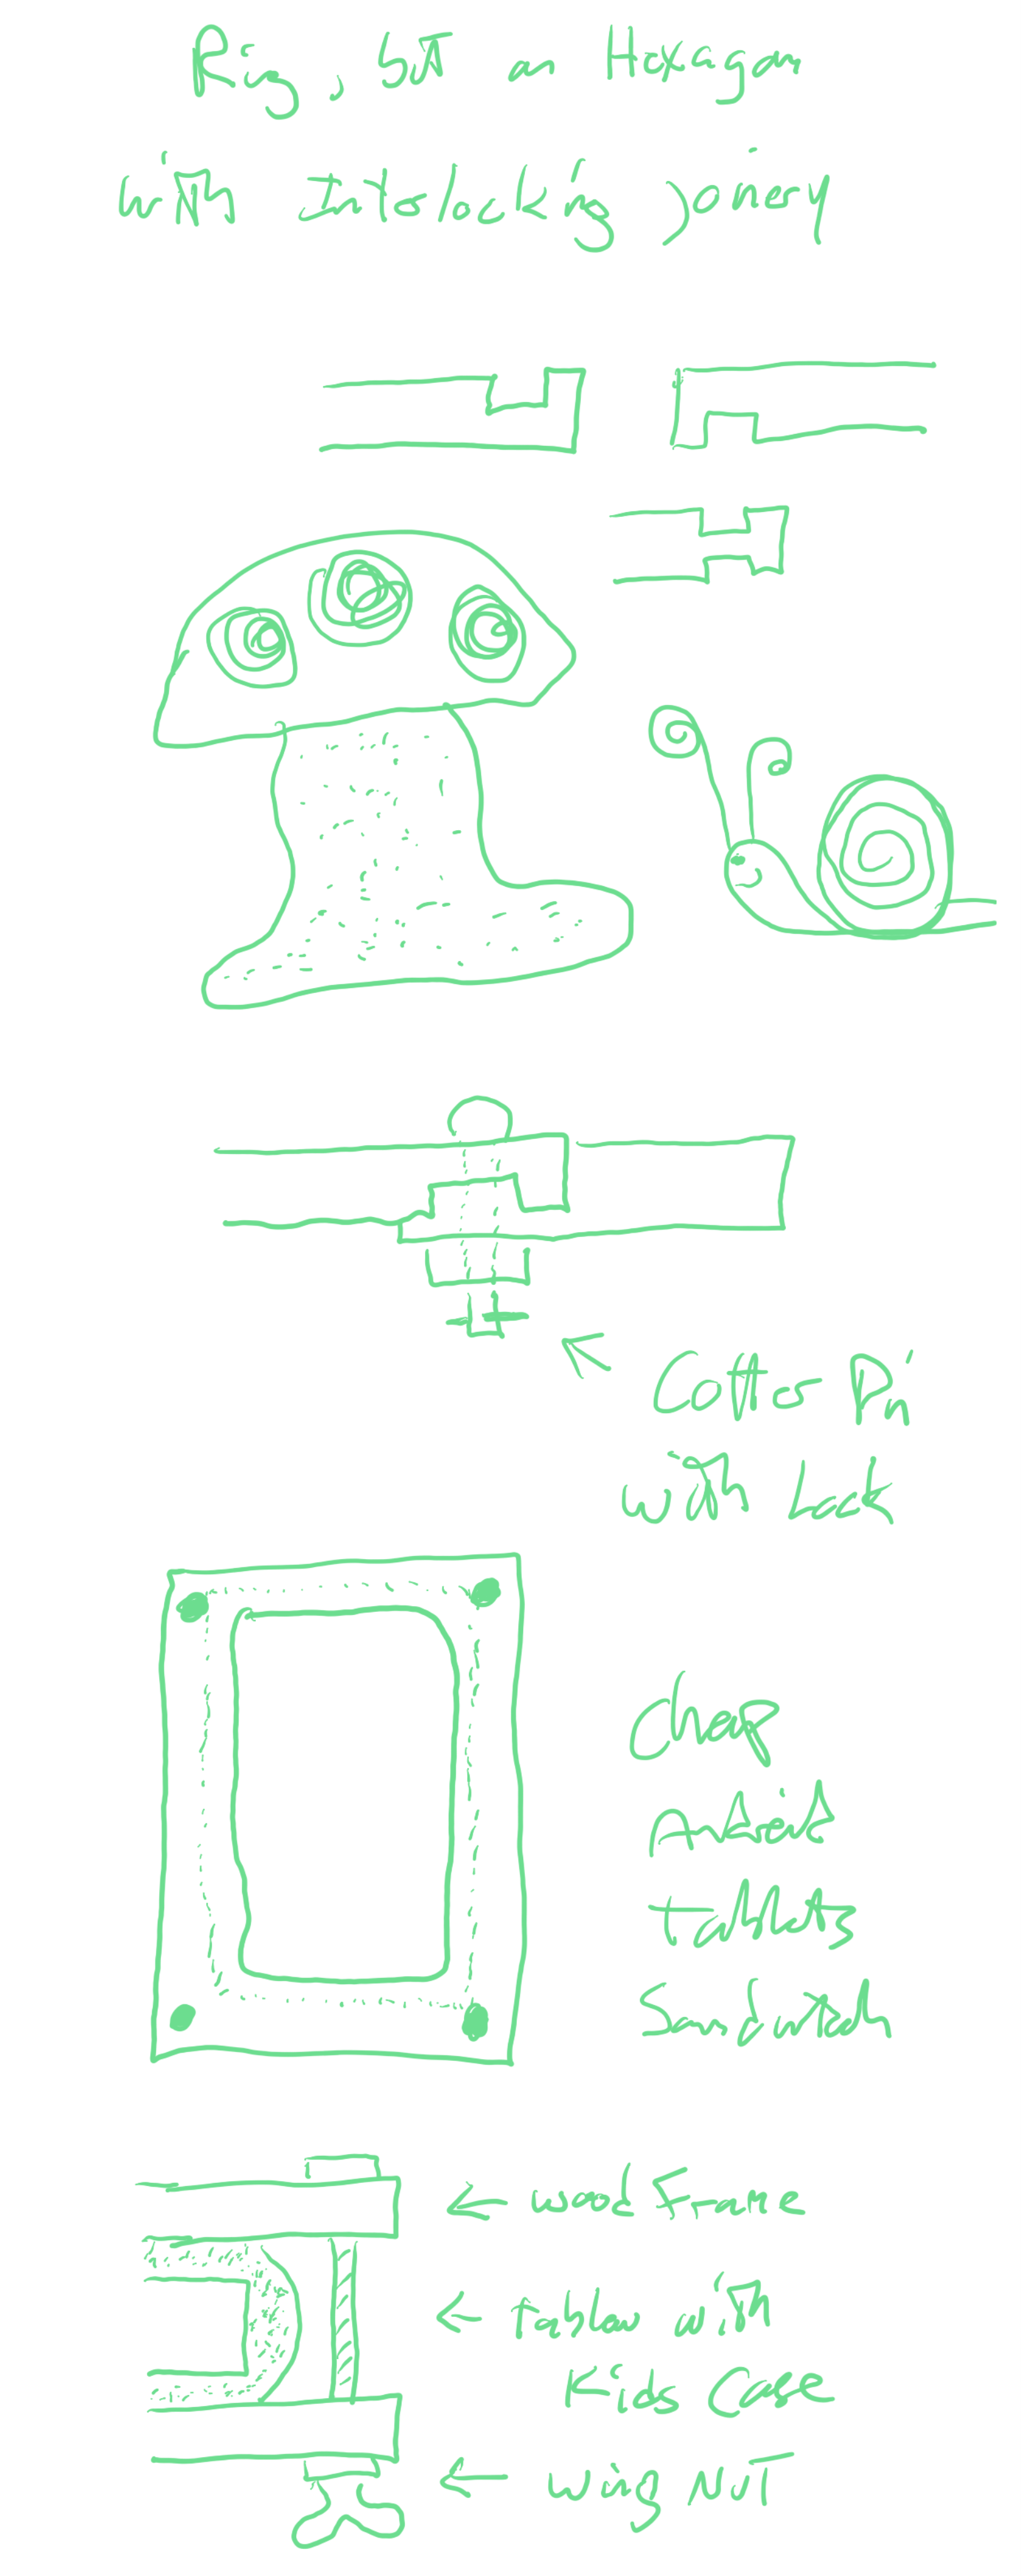 Ring, but a Hexagon
with interlocking joinery
Cotter Pin
with Lock
cheap
Android
tablets
Sandwich
wood Frame
tablet with
Kids Case
wing NUT